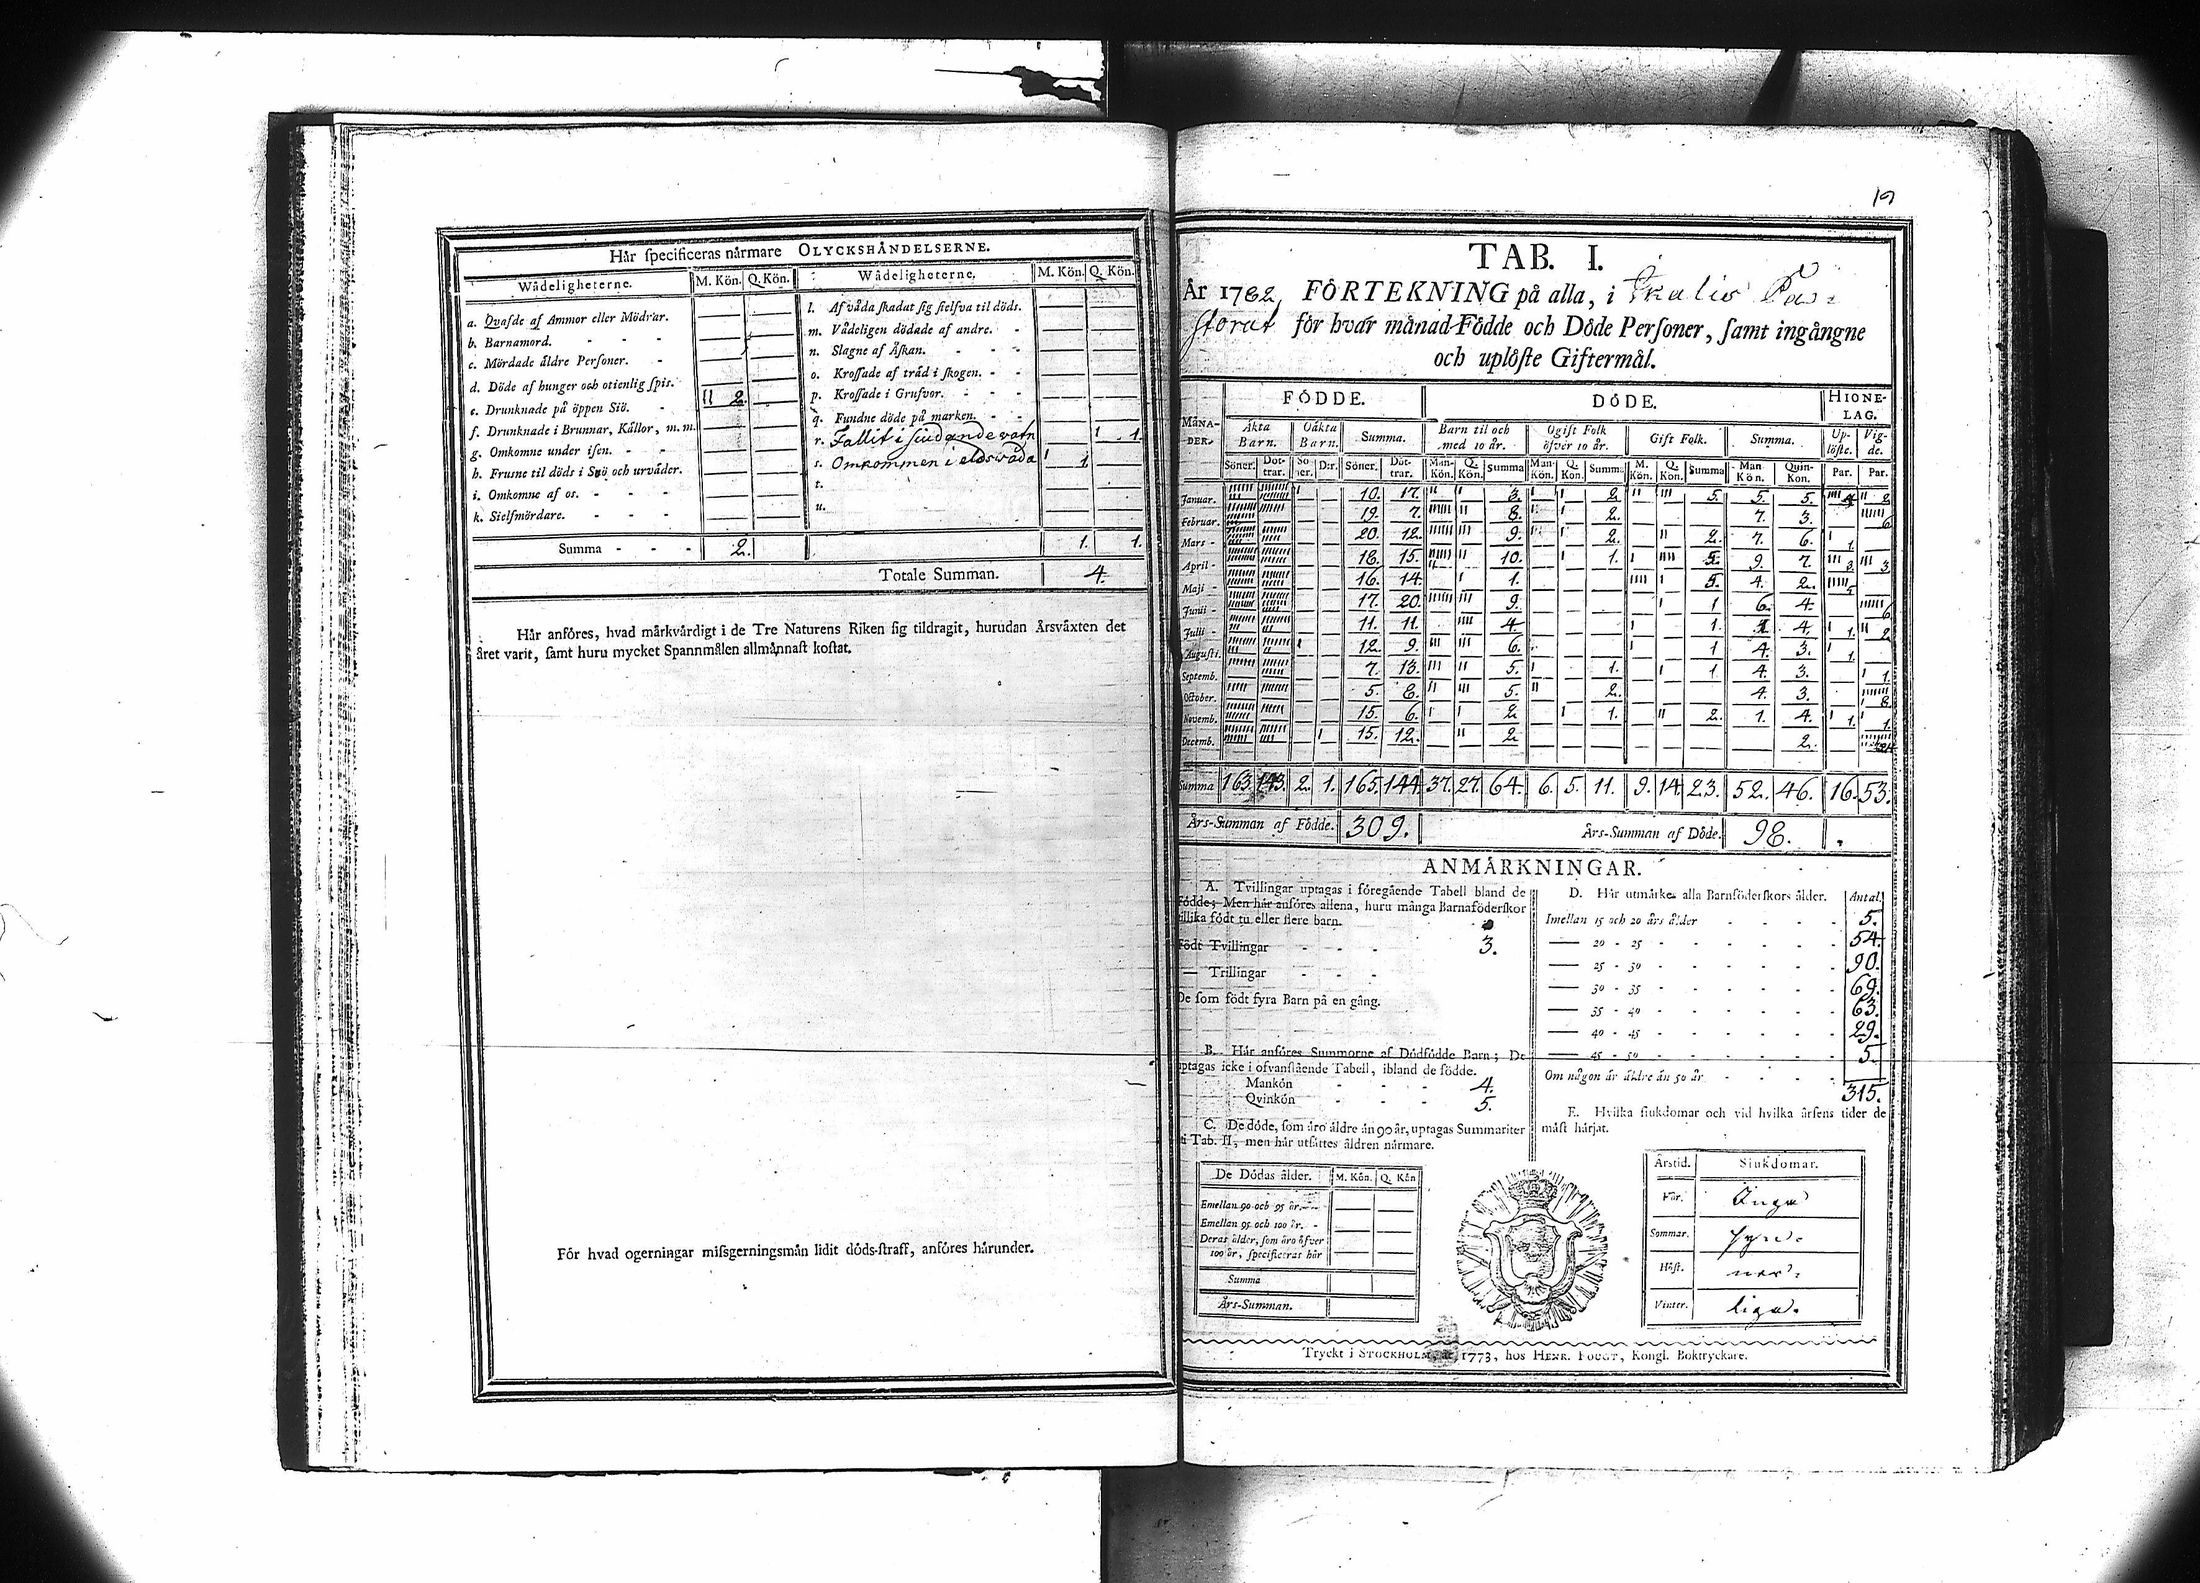 Hår specificeras nårmare OLYCKSHÅNDELSERNE.
Wådeligheterne. M. Kön. Q. Kön. Wådeligheterne. M. Kön. Q. Kön.
a. Qvafde af Ammor eller Mödrar.
b. Barnamord. - - -
c. Mördade åldre Personer. -
d. Döde af hunger och otienlig spis.
e. Drunknade på öppen Siö. - 11 2.
f. Drunknade i Brunnar, Kållor, m. m.
g. Omkomne under isen. - -
h. Frusne til döds i Snö och urvåder.
i. Omkomne af os. - - -
k. Sielfmördare. - - -
l. Af våda skadat sig sielfva til döds.
m. Vådeligen dödade af andre. -
n. Slagne af Åskan. - - -
o. Krossade af tråd i skogen. - -
p. Krossade i Grufvor. - - -
q. Fundne döde på marken. - -
r. Fallit i siudande vatn 1 1.
s. Omkommen i eldsvåda 1 1
t.
u.
Summa - - - 2. 1. 1.
Totale Summan. 4.
Hår anföres, hvad mårkvårdigt i de Tre Naturens Riken sig tildragit, hurudan Årsvåxten det
året varit, samt huru mycket Spannmålen allmånnast kostat.
För hvad ogerningar missgerningsmån lidit döds-straff, anföres hårunder.
19
TAB. I.
År 1782, FÖRTEKNING på alla, i Ikalis Pa-
storat för hvar månad Födde och Döde Personer, samt ingångne
och uplöste Giftermål.
MÅNA-DER. FÖDDE. DÖDE. HIONE-LAG.
Åkta Barn. Oåkta Barn. Summa. Barn til och med 10 år. Ogift Folk öfver 10 år. Gift Folk. Summa. Up-löste. Vig-de.
Söner. Döt-trar. Sö-ner. D:r. Söner. Döt-trar. Man-Kön. Q. Kön. Summa Man-Kön. Q. Kön. Summa M. Kön. Q. Kön. Summa Man-Kön. Quin-Kön. Par. Par.
Januar. 10. 17. 3. 2. 5. 5. 5. 4 2
Februar. 19. 7. 8. 2. 7. 3. 6
Mars - 20. 12. 9. 2. 2. 7. 6. 1.
April - 18. 15. 10. 1. 5. 9. 7. 3. 3
Maji - 16. 14. 1. 5. 4. 2.
Junii - 17. 20. 9. 1 6. 4. 6
Julii - 11. 11. 4 1. 4. 1. 2
Augusti. 12. 9. 6. 1 4. 3. 1.
Septemb. 7. 13. 5. 1. 1. 4. 3. 1.
October. 5. 8. 5. 2. 4. 3. 8
Novemb. 15. 6. 2 1. 2. 1. 4. 1. 1.
Decemb. 15. 12. 2 2.
Summa 163. 143. 2. 1. 165. 144. 37. 27. 64. 6. 5. 11. 9. 14 23. 52. 46. 16. 53.
Års-Summan af Födde. 309. Års-Summan af Döde. 98.
ANMÅRKNINGAR.
A. Tvillingar uptagas i föregående Tabell bland de
födde; Men hår anföres allena, huru många Barnaföderskor
tillika födt tu eller flere barn.
Födt Tvillingar - - - 3.
— Trillingar - - -
De som födt fyra Barn på en gång.
B. Hår anföres Summorne af Dödfödde Barn; De
uptagas icke i ofvanstående Tabell, ibland de födde.
Mankön - - - 4.
Qvinkön - - - 5.
C. De döde, som åro åldre ån 90 år, uptagas Summariter
i Tab. II, men hår utsåttes åldren nårmare.
De Dödas ålder. M. Kön. Q. Kön
Emellan 90 och 95 år. - -
Emellan 95 och 100 år. -
Deras ålder, som åro öfver
100 år, specificeras hår
Summa
Års-Summan.
D. Hår utmårkes alla Barnföderskors ålder. Antal.
Imellan 15 och 20 års ålder - - - - 5.
— 20 - 25 - - - - - 54.
— 25 - 30 - - - - - 90.
— 30 - 35 - - - - - 69.
— 35 - 40 - - - - - 63.
— 40 - 45 - - - - - 29.
— 45 - 50 - - - - - 5.
Om någon år åldre ån 50 år - - - -
315.
E. Hvilka siukdomar och vid hvilka årsens tider de
måst hårjat.
Årstid. Siukdomar.
Vår. Inga
Sommar. syn-
Höst. ner-
Vinter. liga.
Tryckt i STOCKHOLM, år 1773, hos HENR. FOUGT, Kongl. Boktryckare.